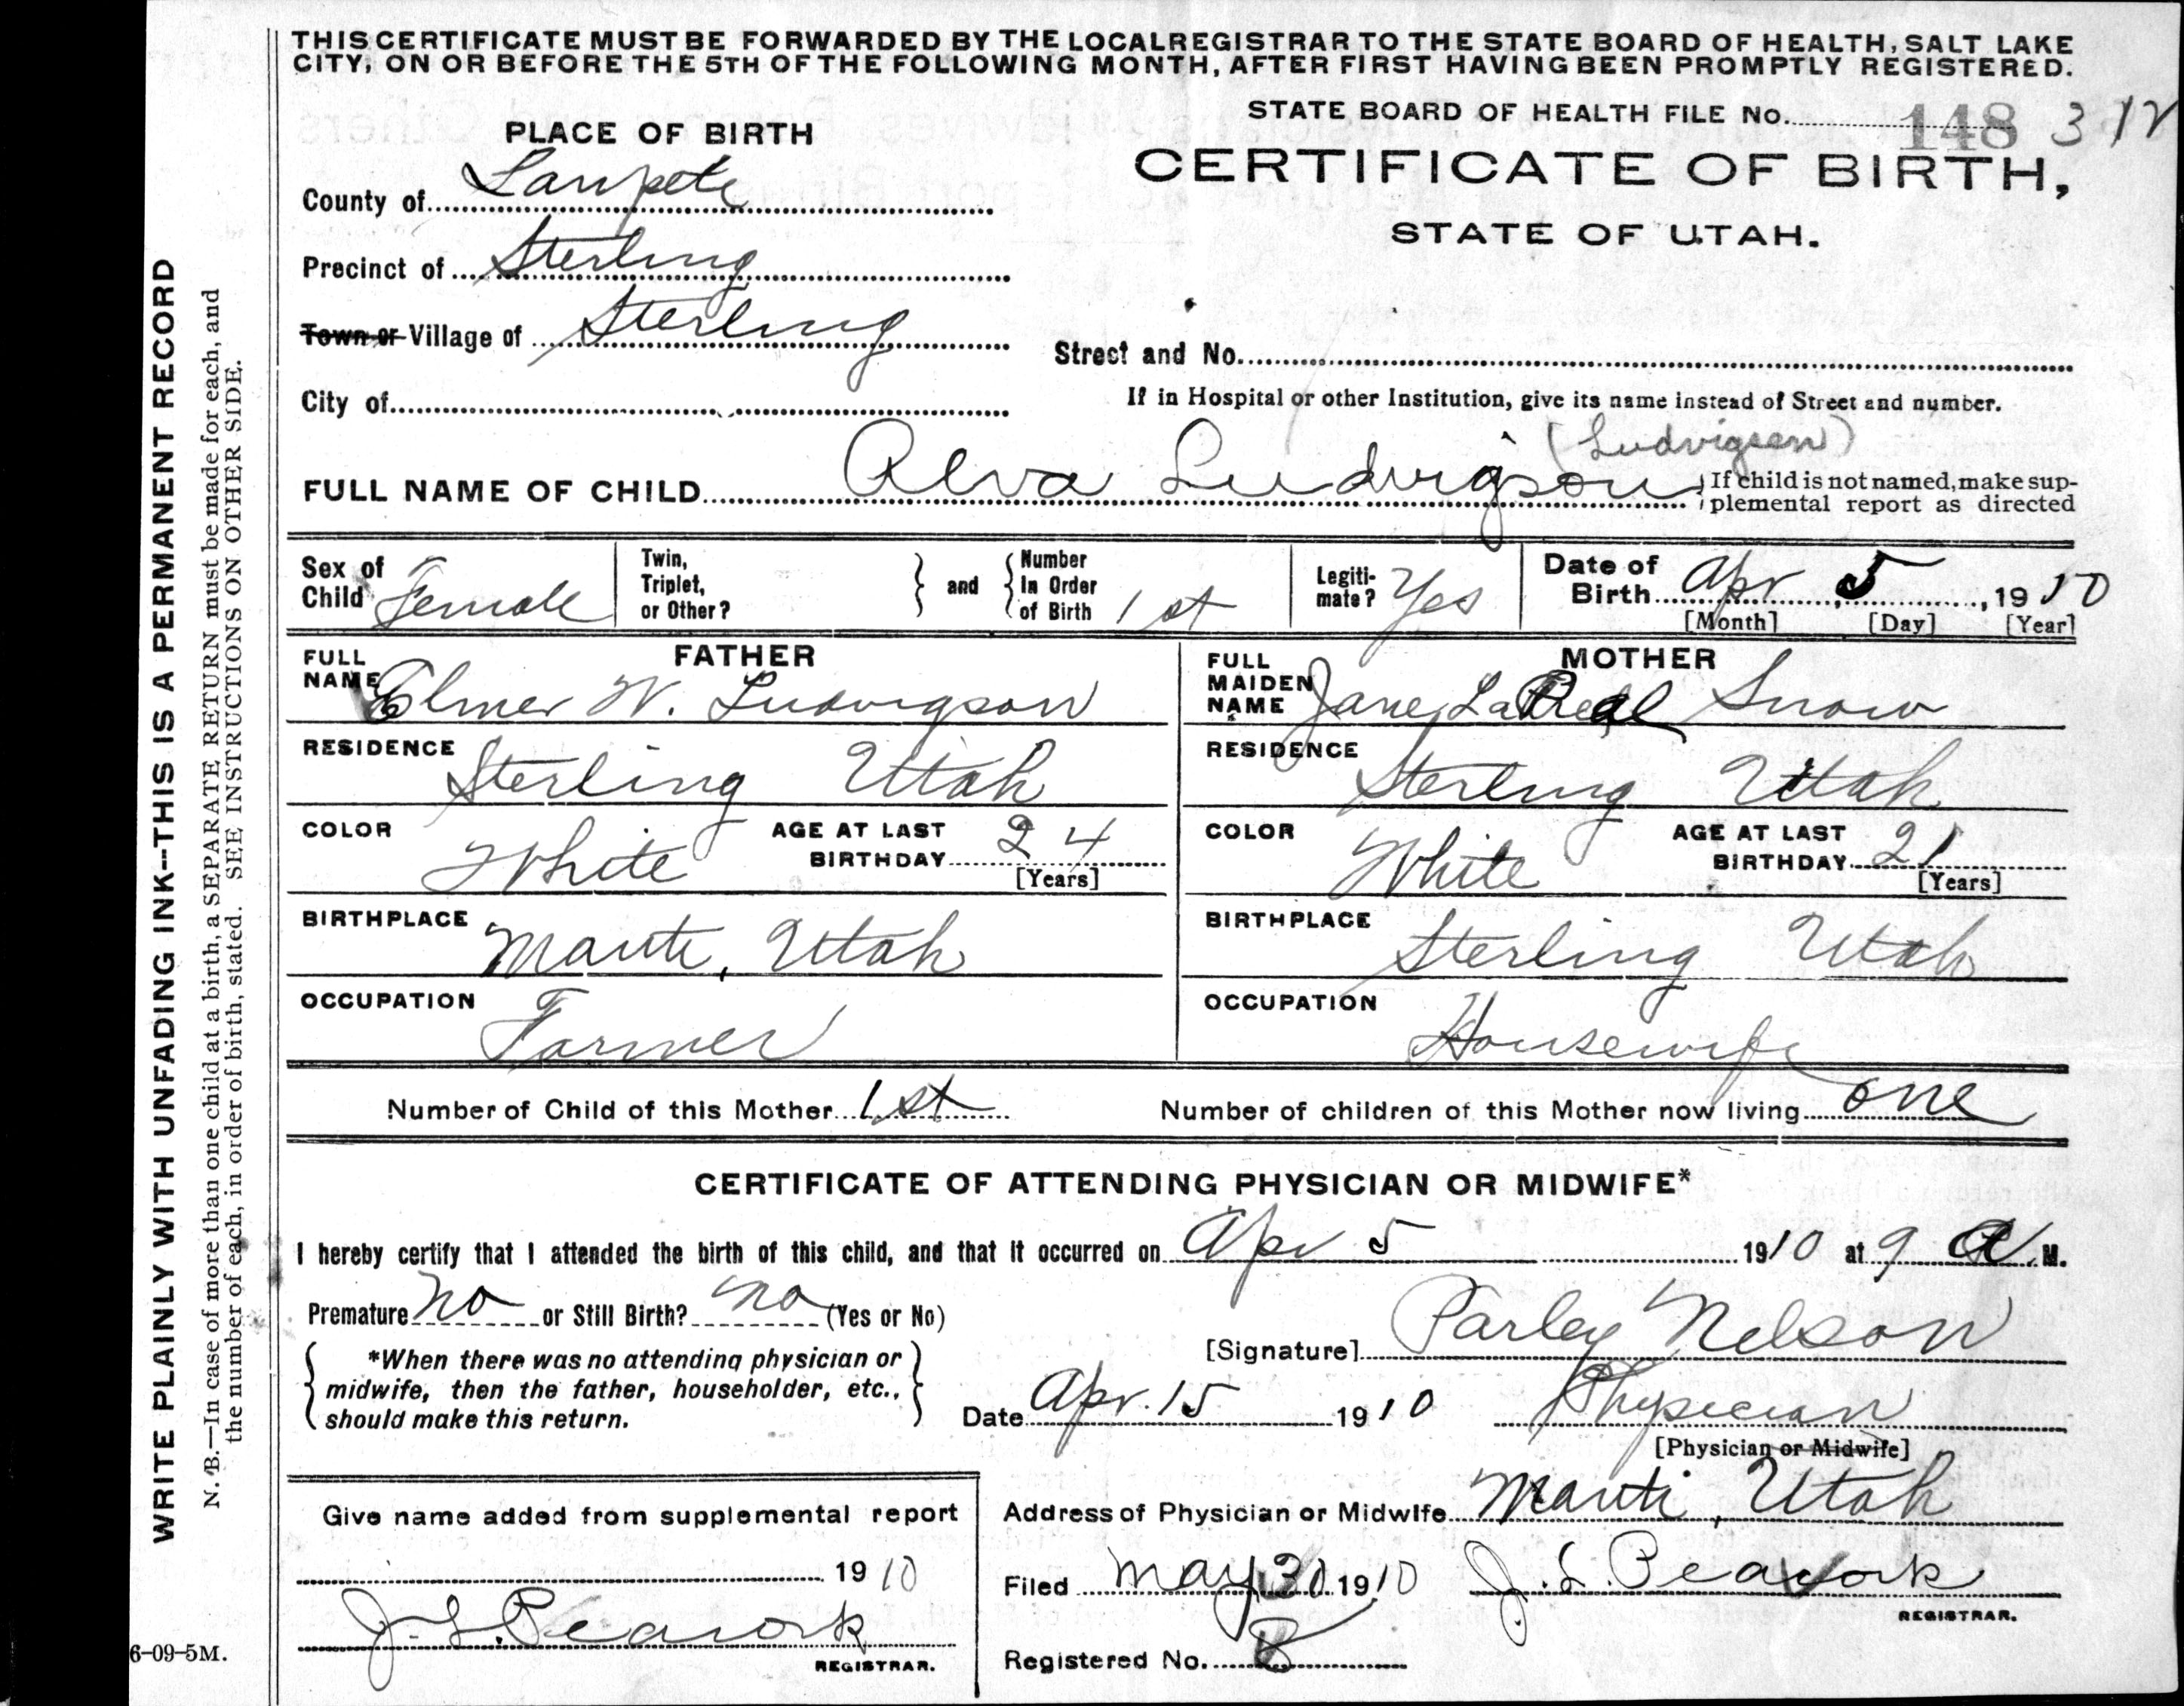 THIS CERTIFICATE MUST BE FORWARDED BY THE LOCAL REGISTRAR TO THE STATE BOARD OF HEALTH, SALT LAKE
CITY, ON OR BEFORE THE 5TH OF THE FOLLOWING MONTH, AFTER FIRST HAVING BEEN PROMPTLY REGISTERED.
STATE BOARD OF HEALTH FILE No. 148 312
CERTIFICATE OF BIRTH,
STATE OF UTAH.
PLACE OF BIRTH
County of Sanpete
Precinct of Sterling
Town or Village of Sterling
City of
Street and No.
If in Hospital or other Institution, give its name instead of Street and number.
(Ludvigsen)
FULL NAME OF CHILD Alva Ludvigson
If child is not named, make sup-
plemental report as directed
Sex of Child Female
Twin, Triplet, or Other?
and
Number In Order of Birth 1st
Legiti-mate? Yes
Date of Birth Apr 5, 1910
[Month] [Day] [Year]
FATHER
FULL NAME Elmer W. Ludvigson
RESIDENCE Sterling Utah
COLOR White
AGE AT LAST BIRTHDAY 24
[Years]
BIRTHPLACE Manti, Utah
OCCUPATION Farmer
MOTHER
FULL MAIDEN NAME Jane Snow
RESIDENCE Sterling Utah
COLOR White
AGE AT LAST BIRTHDAY 21
[Years]
BIRTHPLACE Sterling Utah
OCCUPATION Housewife
Number of Child of this Mother 1st
Number of children of this Mother now living one
CERTIFICATE OF ATTENDING PHYSICIAN OR MIDWIFE*
I hereby certify that I attended the birth of this child, and that it occurred on Apr 5 1910 at 9 A. M.
Premature no or Still Birth? no (Yes or No)
*When there was no attending physician or
midwife, then the father, householder, etc.,
should make this return.
[Signature] Parley Nelson
Date Apr. 15 1910
Physician
[Physician or Midwife]
Give name added from supplemental report
1910
J. L. Peacock
REGISTRAR.
Address of Physician or Midwife Manti, Utah
Filed May 1910 J. L. Peacock
REGISTRAR.
Registered No. 8
WRITE PLAINLY WITH UNFADING INK--THIS IS A PERMANENT RECORD
N. B.—In case of more than one child at a birth, a SEPARATE RETURN must be made for each, and
the number of each, in order of birth, stated. SEE INSTRUCTIONS ON OTHER SIDE.
6-09-5M.